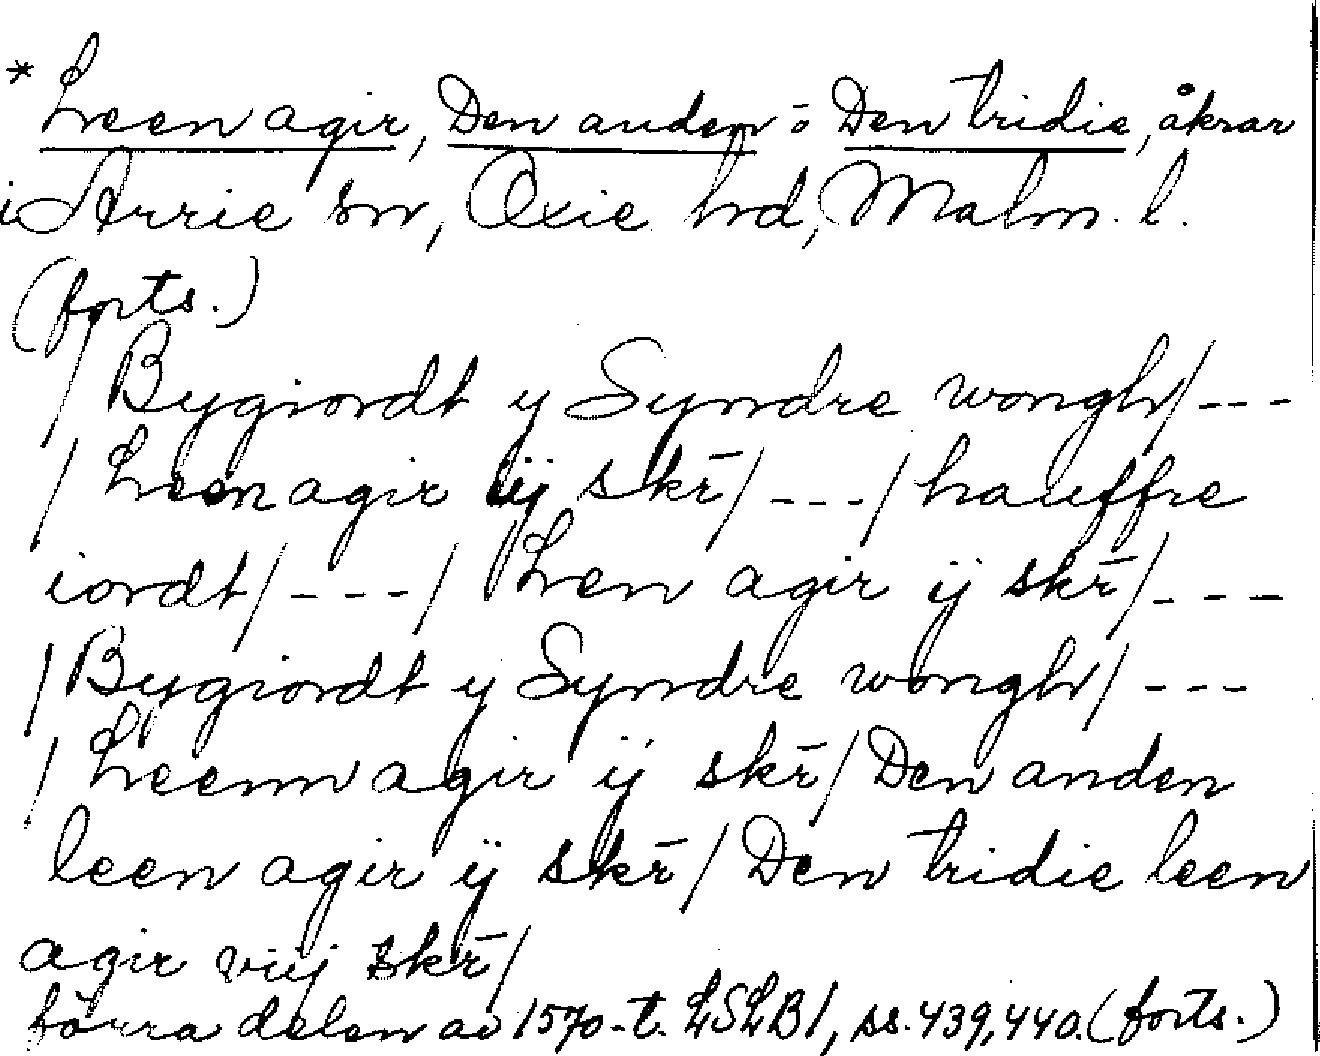 * Leen agir, Den anden o Den tridie, åkrar
i Arrie sn, Oxie hd, Malm. l.
(forts.)
/ Bygiordt y Syndre wongh/ ---
/ Leen agir iij skr̄/ --- / hauffre
iordt/ --- / Leen agir ij skr̄/ ---
/ Bygiordt y Syndre wongh/ ---
/ Leenn agir ij skr̄/ Den anden
leen agir ij skr̄/ Den tridie leen
agir viij skr̄/
förra delen av 1570-t. LSLB1, ss. 439, 440. (forts.)